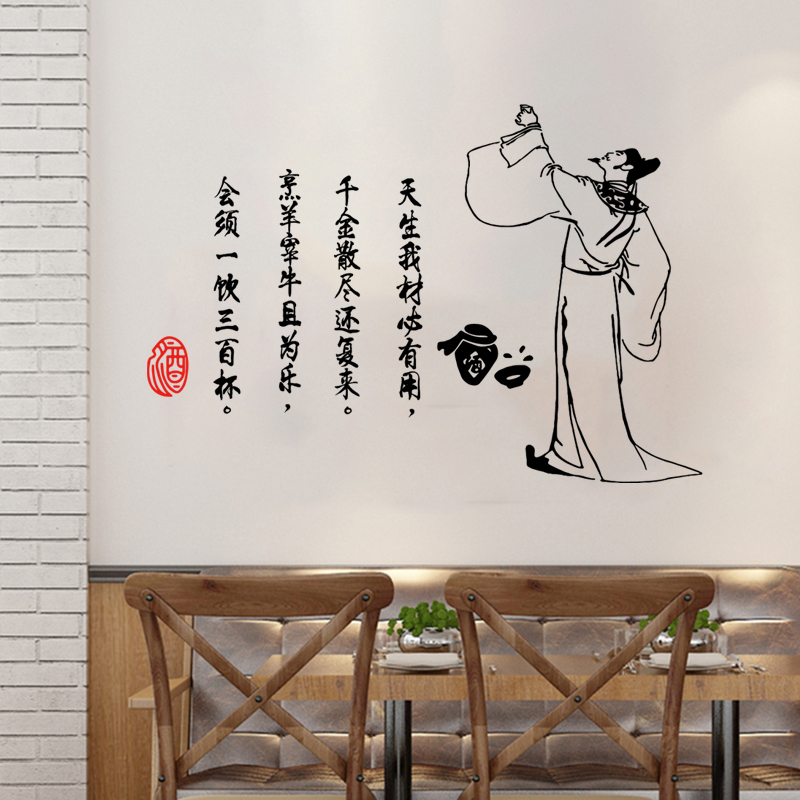 天生我材必有用，
千金散尽还复来。
烹羊宰牛且为乐，
会须一饮三百杯。
酒
酒